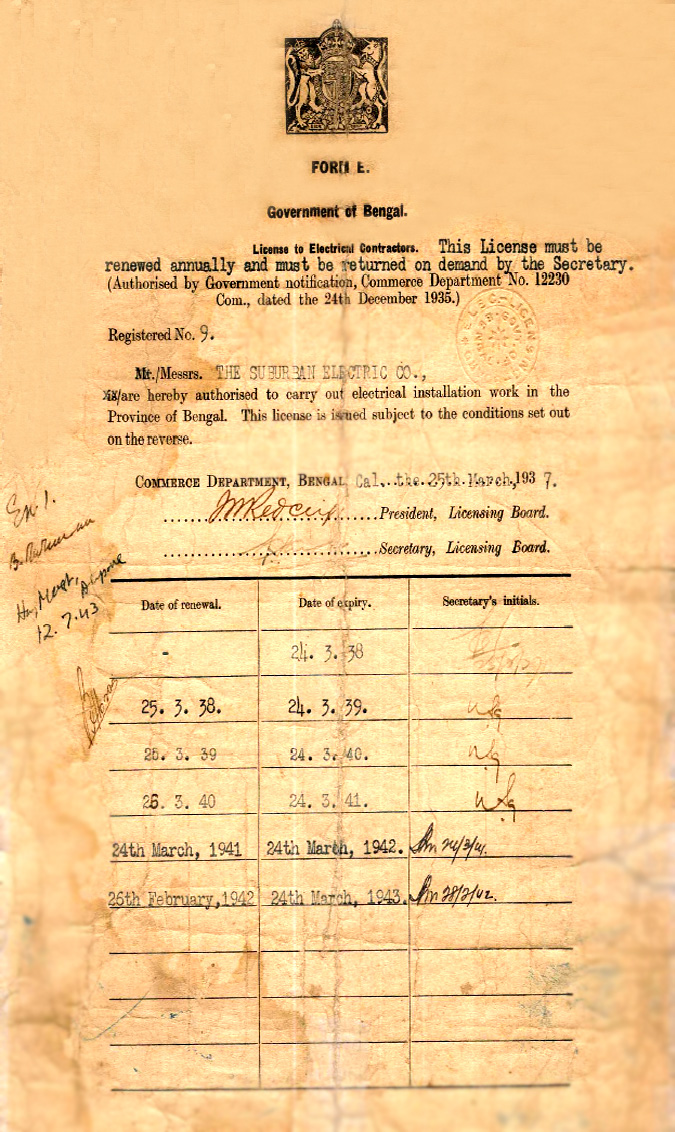 FORM E.
Government of Bengal.
License to Electrical Contractors. This License must be
renewed annually and must be returned on demand by the Secretary.
(Authorised by Government notification, Commerce Department No. 12230
Com., dated the 24th December 1935.)
Registered No. 9.
Mr./Messrs. THE SUBURBAN ELECTRIC CO.,
is/are hereby authorised to carry out electrical installation work in the
Province of Bengal. This license is issued subject to the conditions set out
on the reverse.
COMMERCE DEPARTMENT, BENGAL Cal., the 25th March, 1937.
President, Licensing Board.
Secretary, Licensing Board.
Ex. 1.
12.7.43
Date of renewal. Date of expiry. Secretary's initials.
- 24. 3. 38
25. 3. 38. 24. 3. 39.
25. 3. 39 24. 3. 40.
26. 3. 40 24. 3. 41.
24th March, 1941 24th March, 1942. 24/3/41.
26th February, 1942 24th March, 1943. 28/2/42.